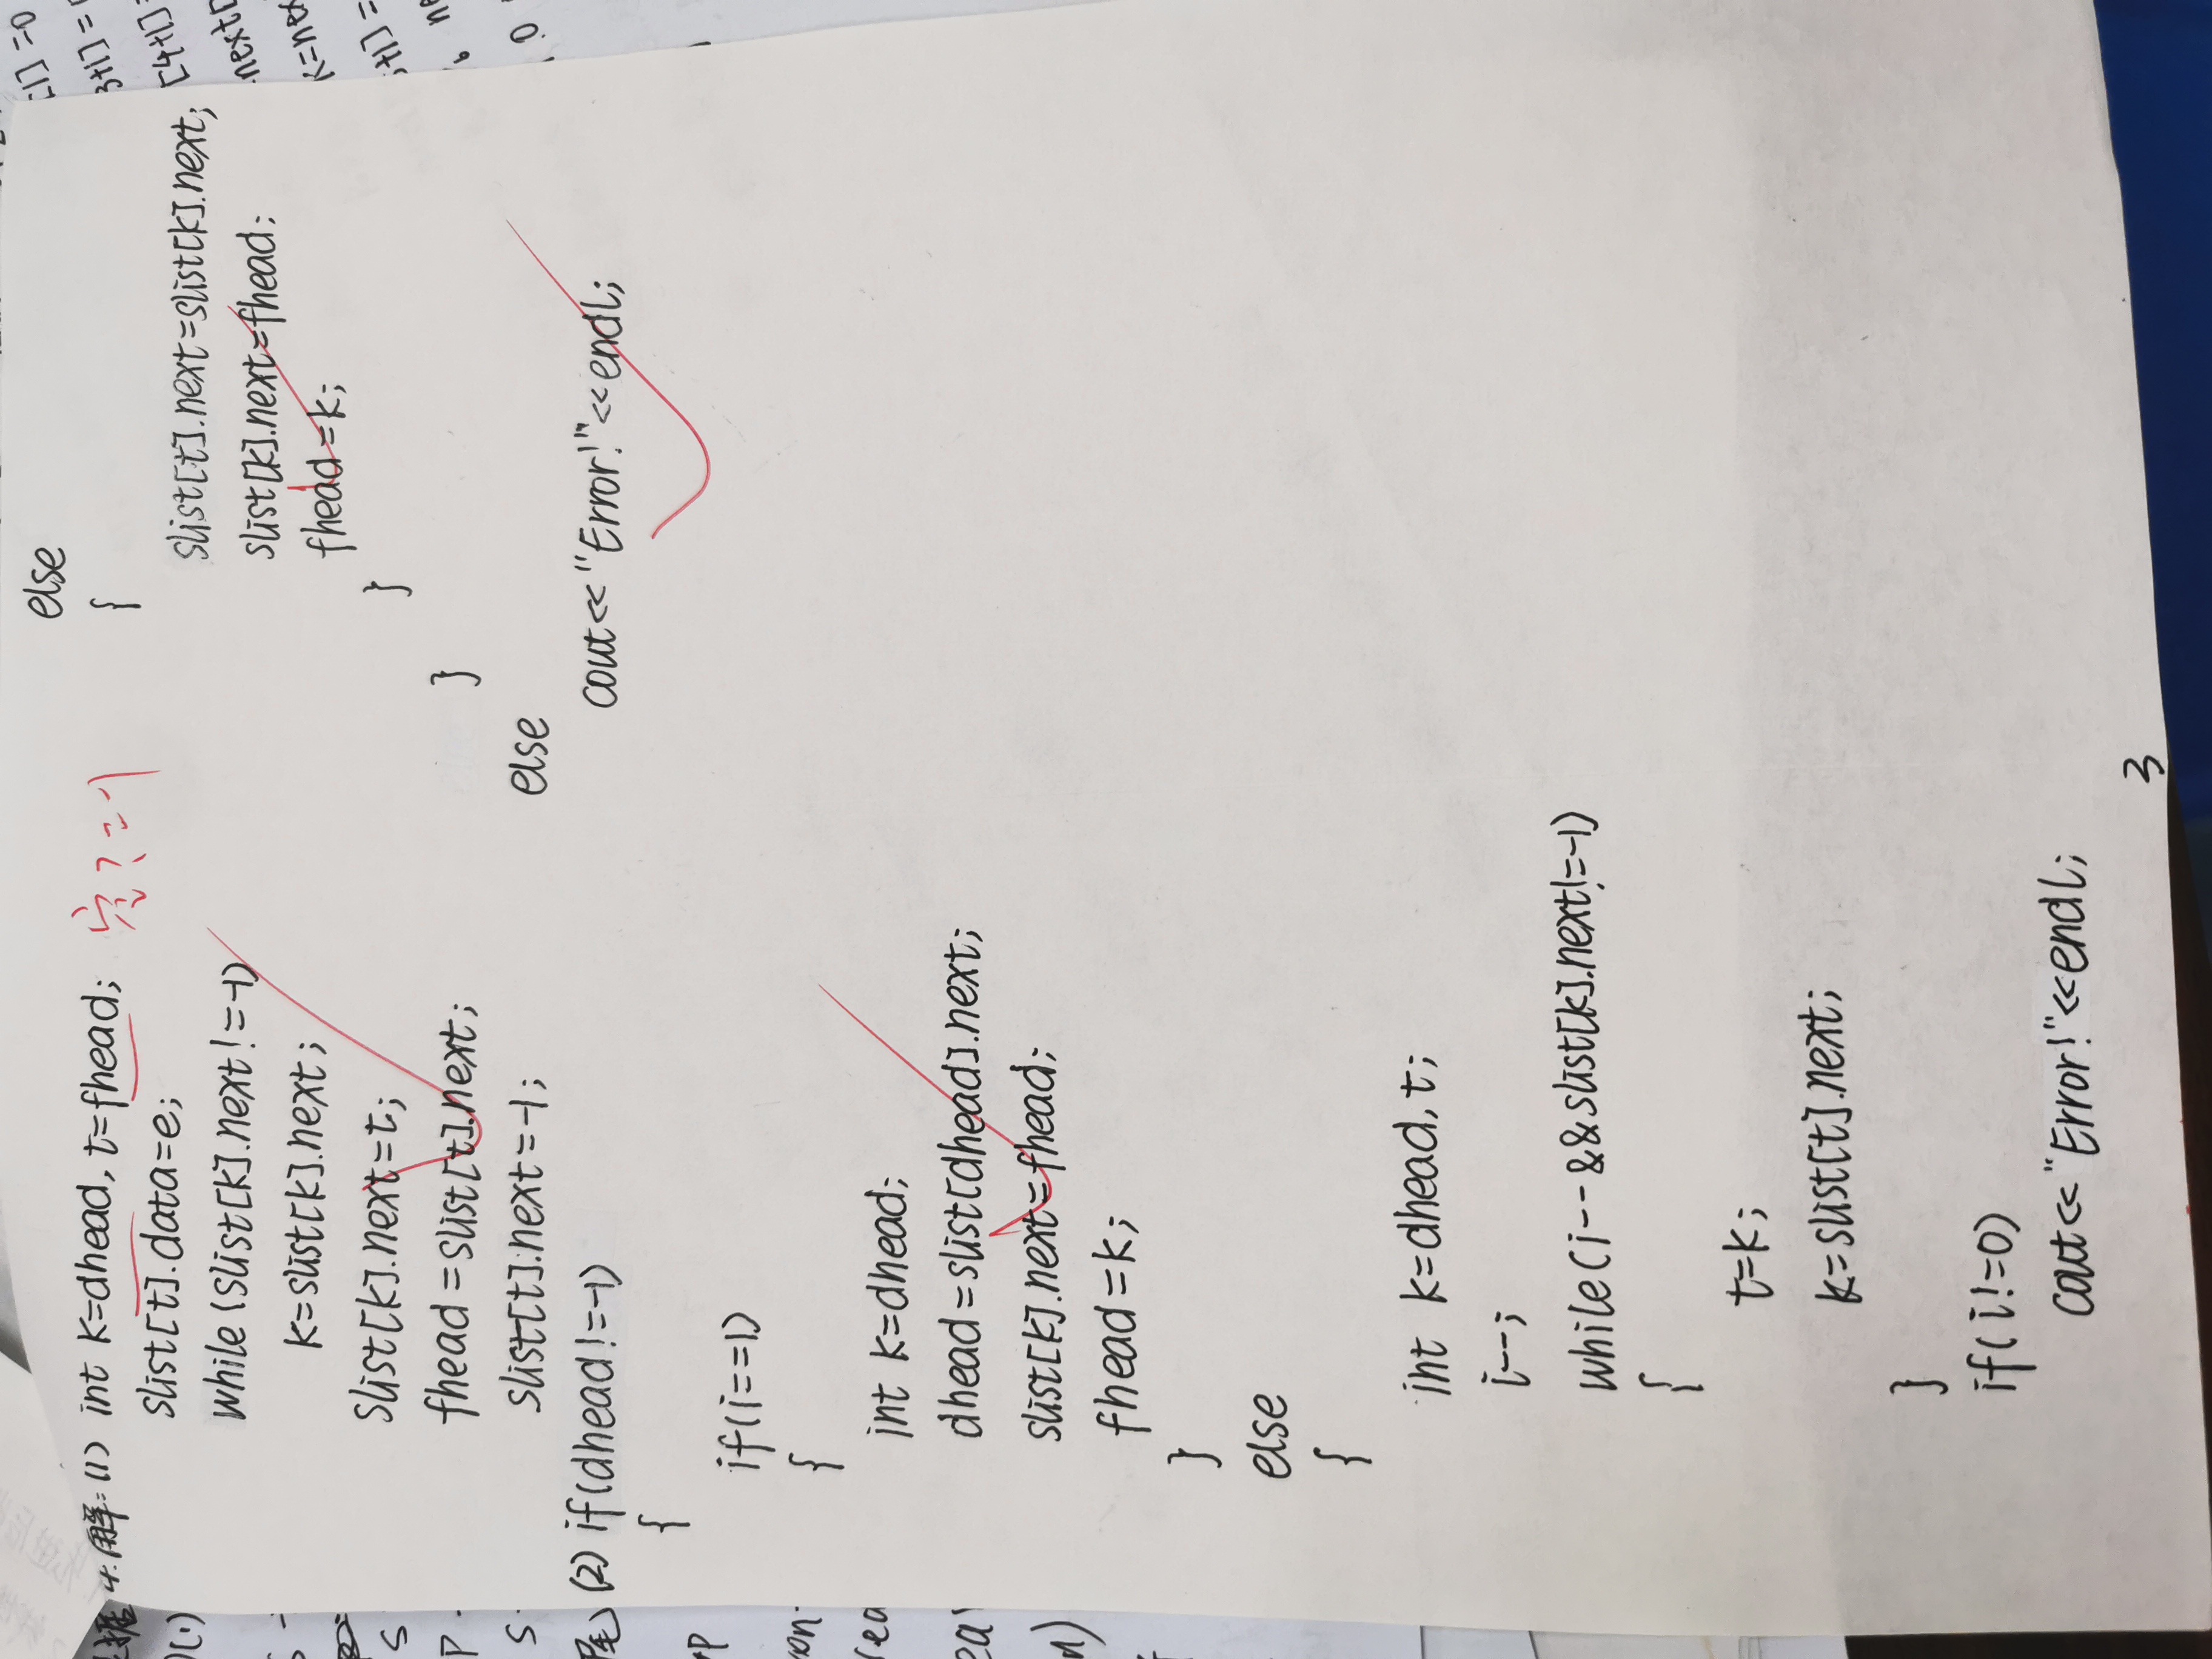 4.解:(1) int k=dhead, t=fhead; 空?=-1
slist[t].data=e;
while(slist[k].next!=-1)
k=slist[k].next;
slist[k].next=t;
fhead=slist[t].next;
slist[t].next=-1;
(2) if(dhead!=-1)
{
if(i==1)
{
int k=dhead;
dhead=slist[dhead].next;
slist[k].next=fhead;
fhead=k;
}
else
{
int k=dhead,t;
i--;
while(i--&&slist[k].next!=-1)
{
t=k;
k=slist[t].next;
}
if(i!=0)
cout<<"Error!"<<endl;
else
{
slist[t].next=slist[k].next;
slist[k].next=fhead;
fhead=k;
}
}
else
cout<<"Error!"<<endl;
3
[1]=0
3+1]=
[4+1]=
next[
k=nex
+1]=
ne
0
(1)
S
P
S
尾)
P
on
rea
ea
n)